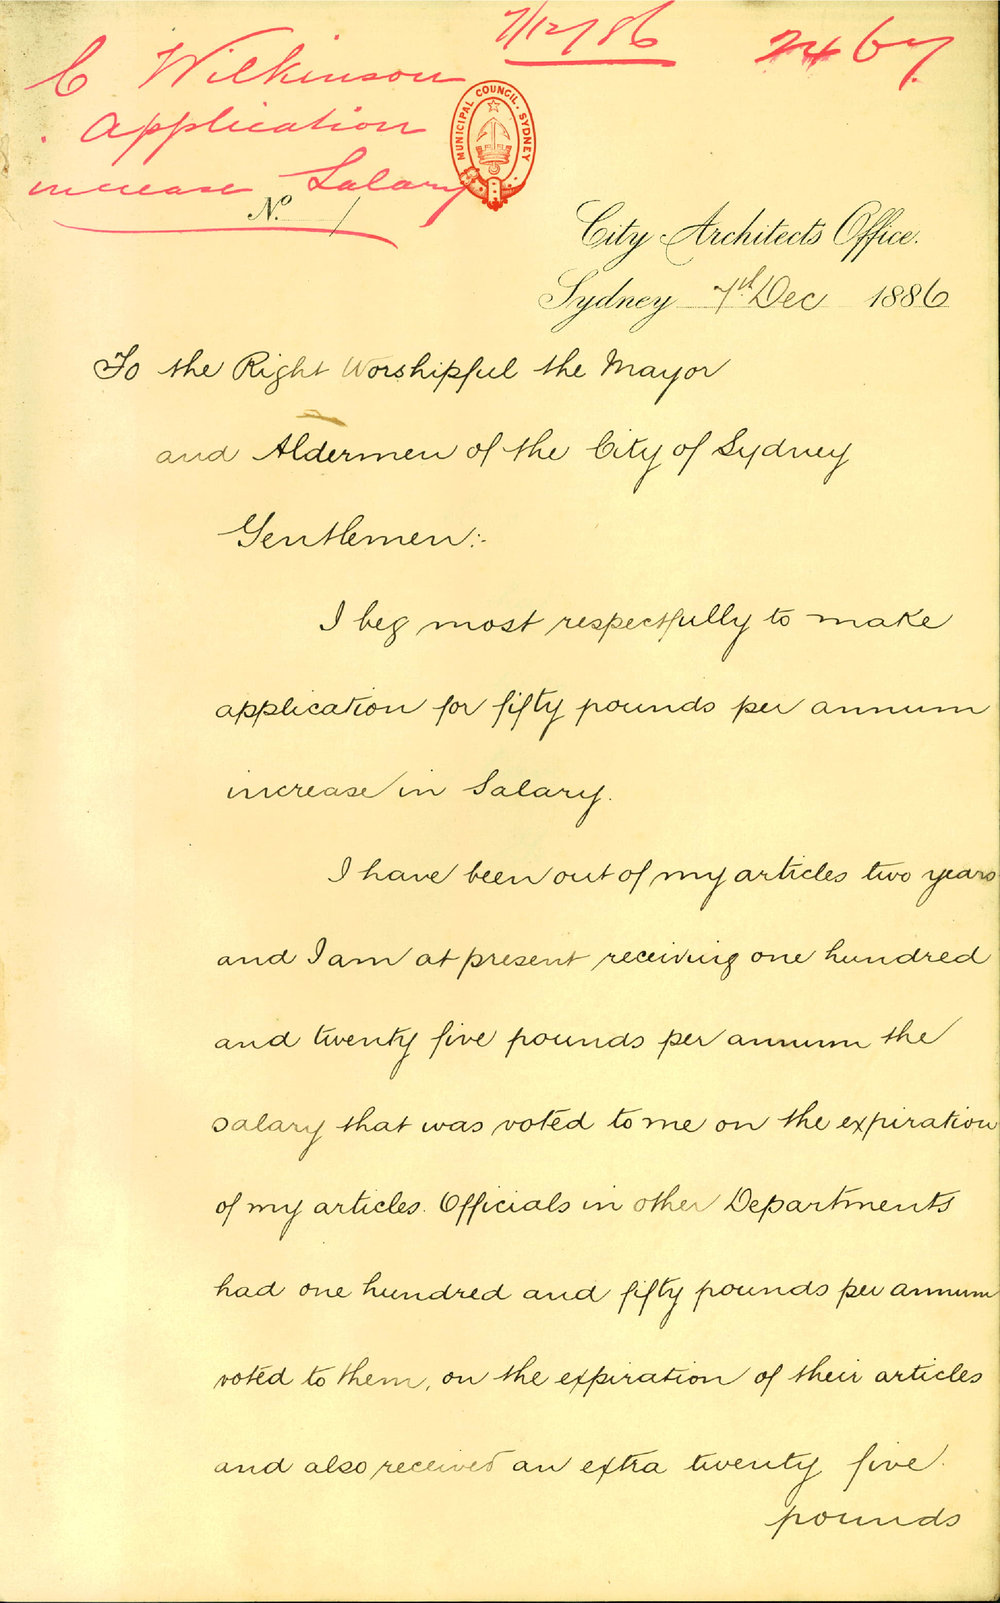 7/12/86
C Wilkinson
Application
increase Salary
MUNICIPAL COUNCIL. SYDNEY
No. /
City Architects Office.
Sydney 7th Dec 1886
To the Right Worshipful the Mayor
and Aldermen of the City of Sydney
Gentlemen:-
I beg most respectfully to make
application for fifty pounds per annum
increase in Salary.
I have been out of my articles two years
and I am at present receiving one hundred
and twenty five pounds per annum the
salary that was voted to me on the expiration
of my articles. Officials in other Departments
had one hundred and fifty pounds per annum
voted to them, on the expiration of their articles
and also received an extra twenty five
pounds